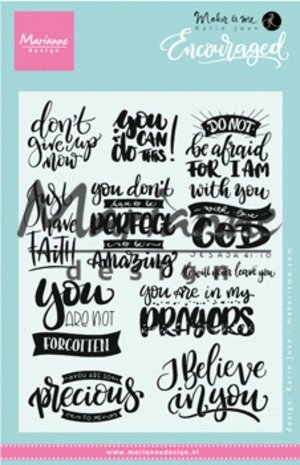 Marianne
design
Maker is me
Karin Joan
Encouraged
don't
give up
now
you
CAN
do THIS!
DO NOT
be afraid
FOR I AM
with you
Just
have
FAITH
you don't
have to be
PERFECT
to be
Amazing
with love
GOD
ISAIAH 41:10
I will never leave you
Marianne
design
you
ARE NOT
FORGOTTEN
you are in my
PRAYERS
YOU ARE SO
precious
TO ME
I Believe
in you
design: Karin Joan - makerisme.com
www.mariannedesign.nl